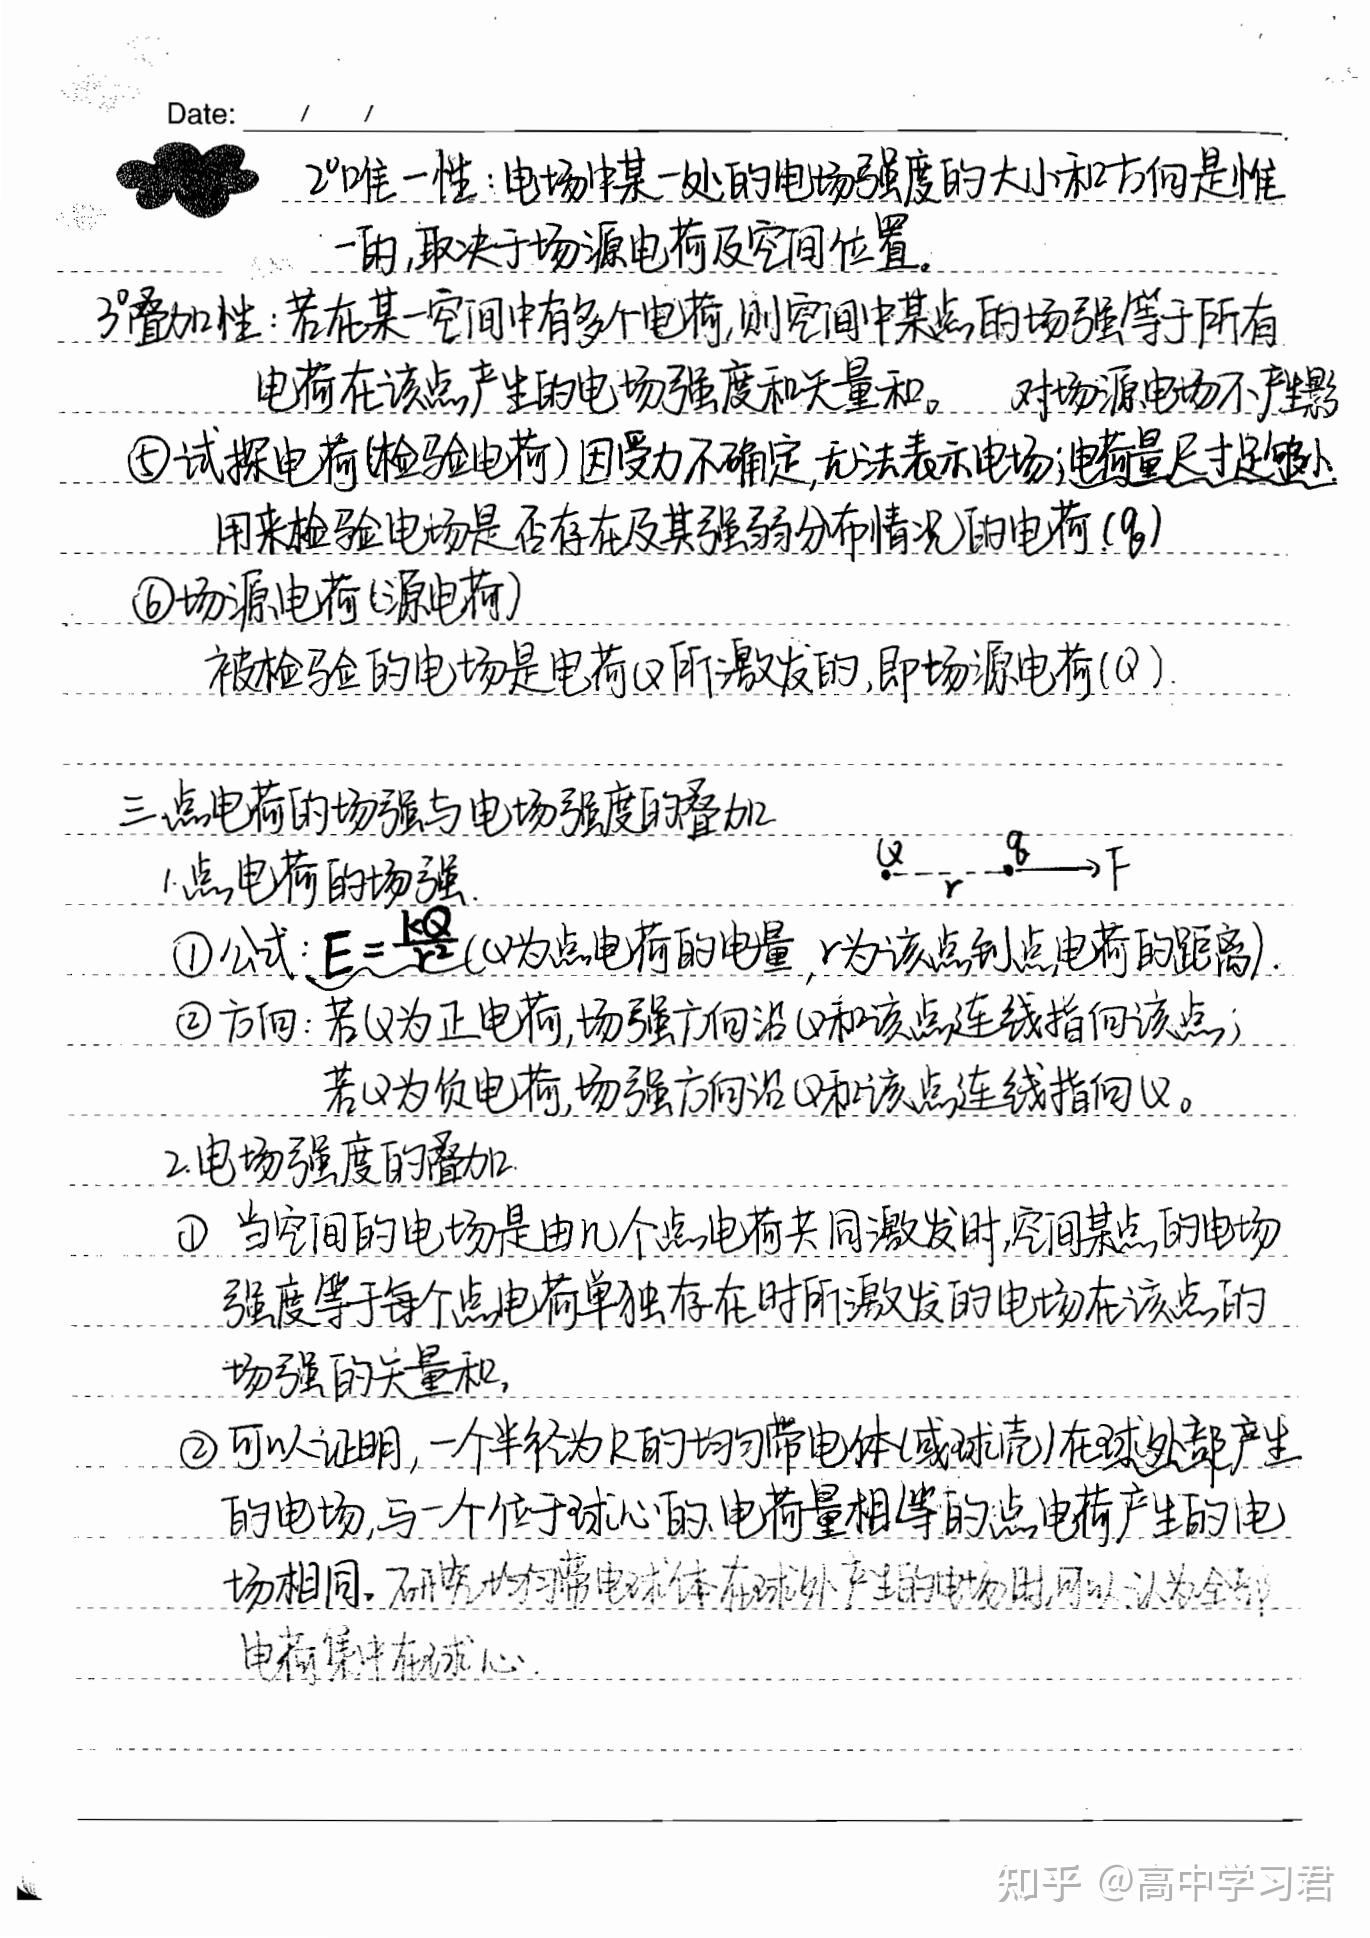 Date: / /
2°唯一性:电场中某一处的电场强度的大小和方向是惟
一的,取决于场源电荷及空间位置。
3°叠加性:若在某一空间中有多个电荷,则空间中某点的场强等于所有
电荷在该点产生的电场强度和矢量和。 对场源电场不产生影
⑤试探电荷(检验电荷)因受力不确定,无法表示电场;电荷量尺寸足够小
用来检验电场是否存在及其强弱分布情况的电荷(q)
⑥场源电荷(源电荷)
被检验的电场是电荷Q所激发的,即场源电荷(Q).
三.点电荷的场强与电场强度的叠加
1.点电荷的场强.
Q q F
r
①公式:E=kQ/r²(Q为点电荷的电量,r为该点到点电荷的距离).
②方向:若Q为正电荷,场强方向沿Q和该点连线指向该点;
若Q为负电荷,场强方向沿Q和该点连线指向Q。
2.电场强度的叠加.
① 当空间的电场是由几个点电荷共同激发时,空间某点的电场
强度等于每个点电荷单独存在时所激发的电场在该点的
场强的矢量和,
②可以证明,一个半径为R的均匀带电体(或球壳)在球外部产生
的电场,与一个位于球心的、电荷量相等的点电荷产生的电
场相同。研究均匀带电球体在球外产生的电场时,可以认为全部
电荷集中在球心.
知乎 @高中学习君